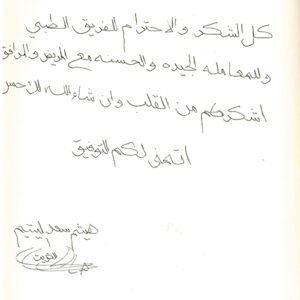 كل الشكر والاحترام للفريق الطبي
وللمعامله الجيده والحسنه مع المريض والمرافق
اشكركم من القلب وان شاء الله للأحسن
اتمنى لكم التوفيق
هيثم سعد اليتيم
الكويت